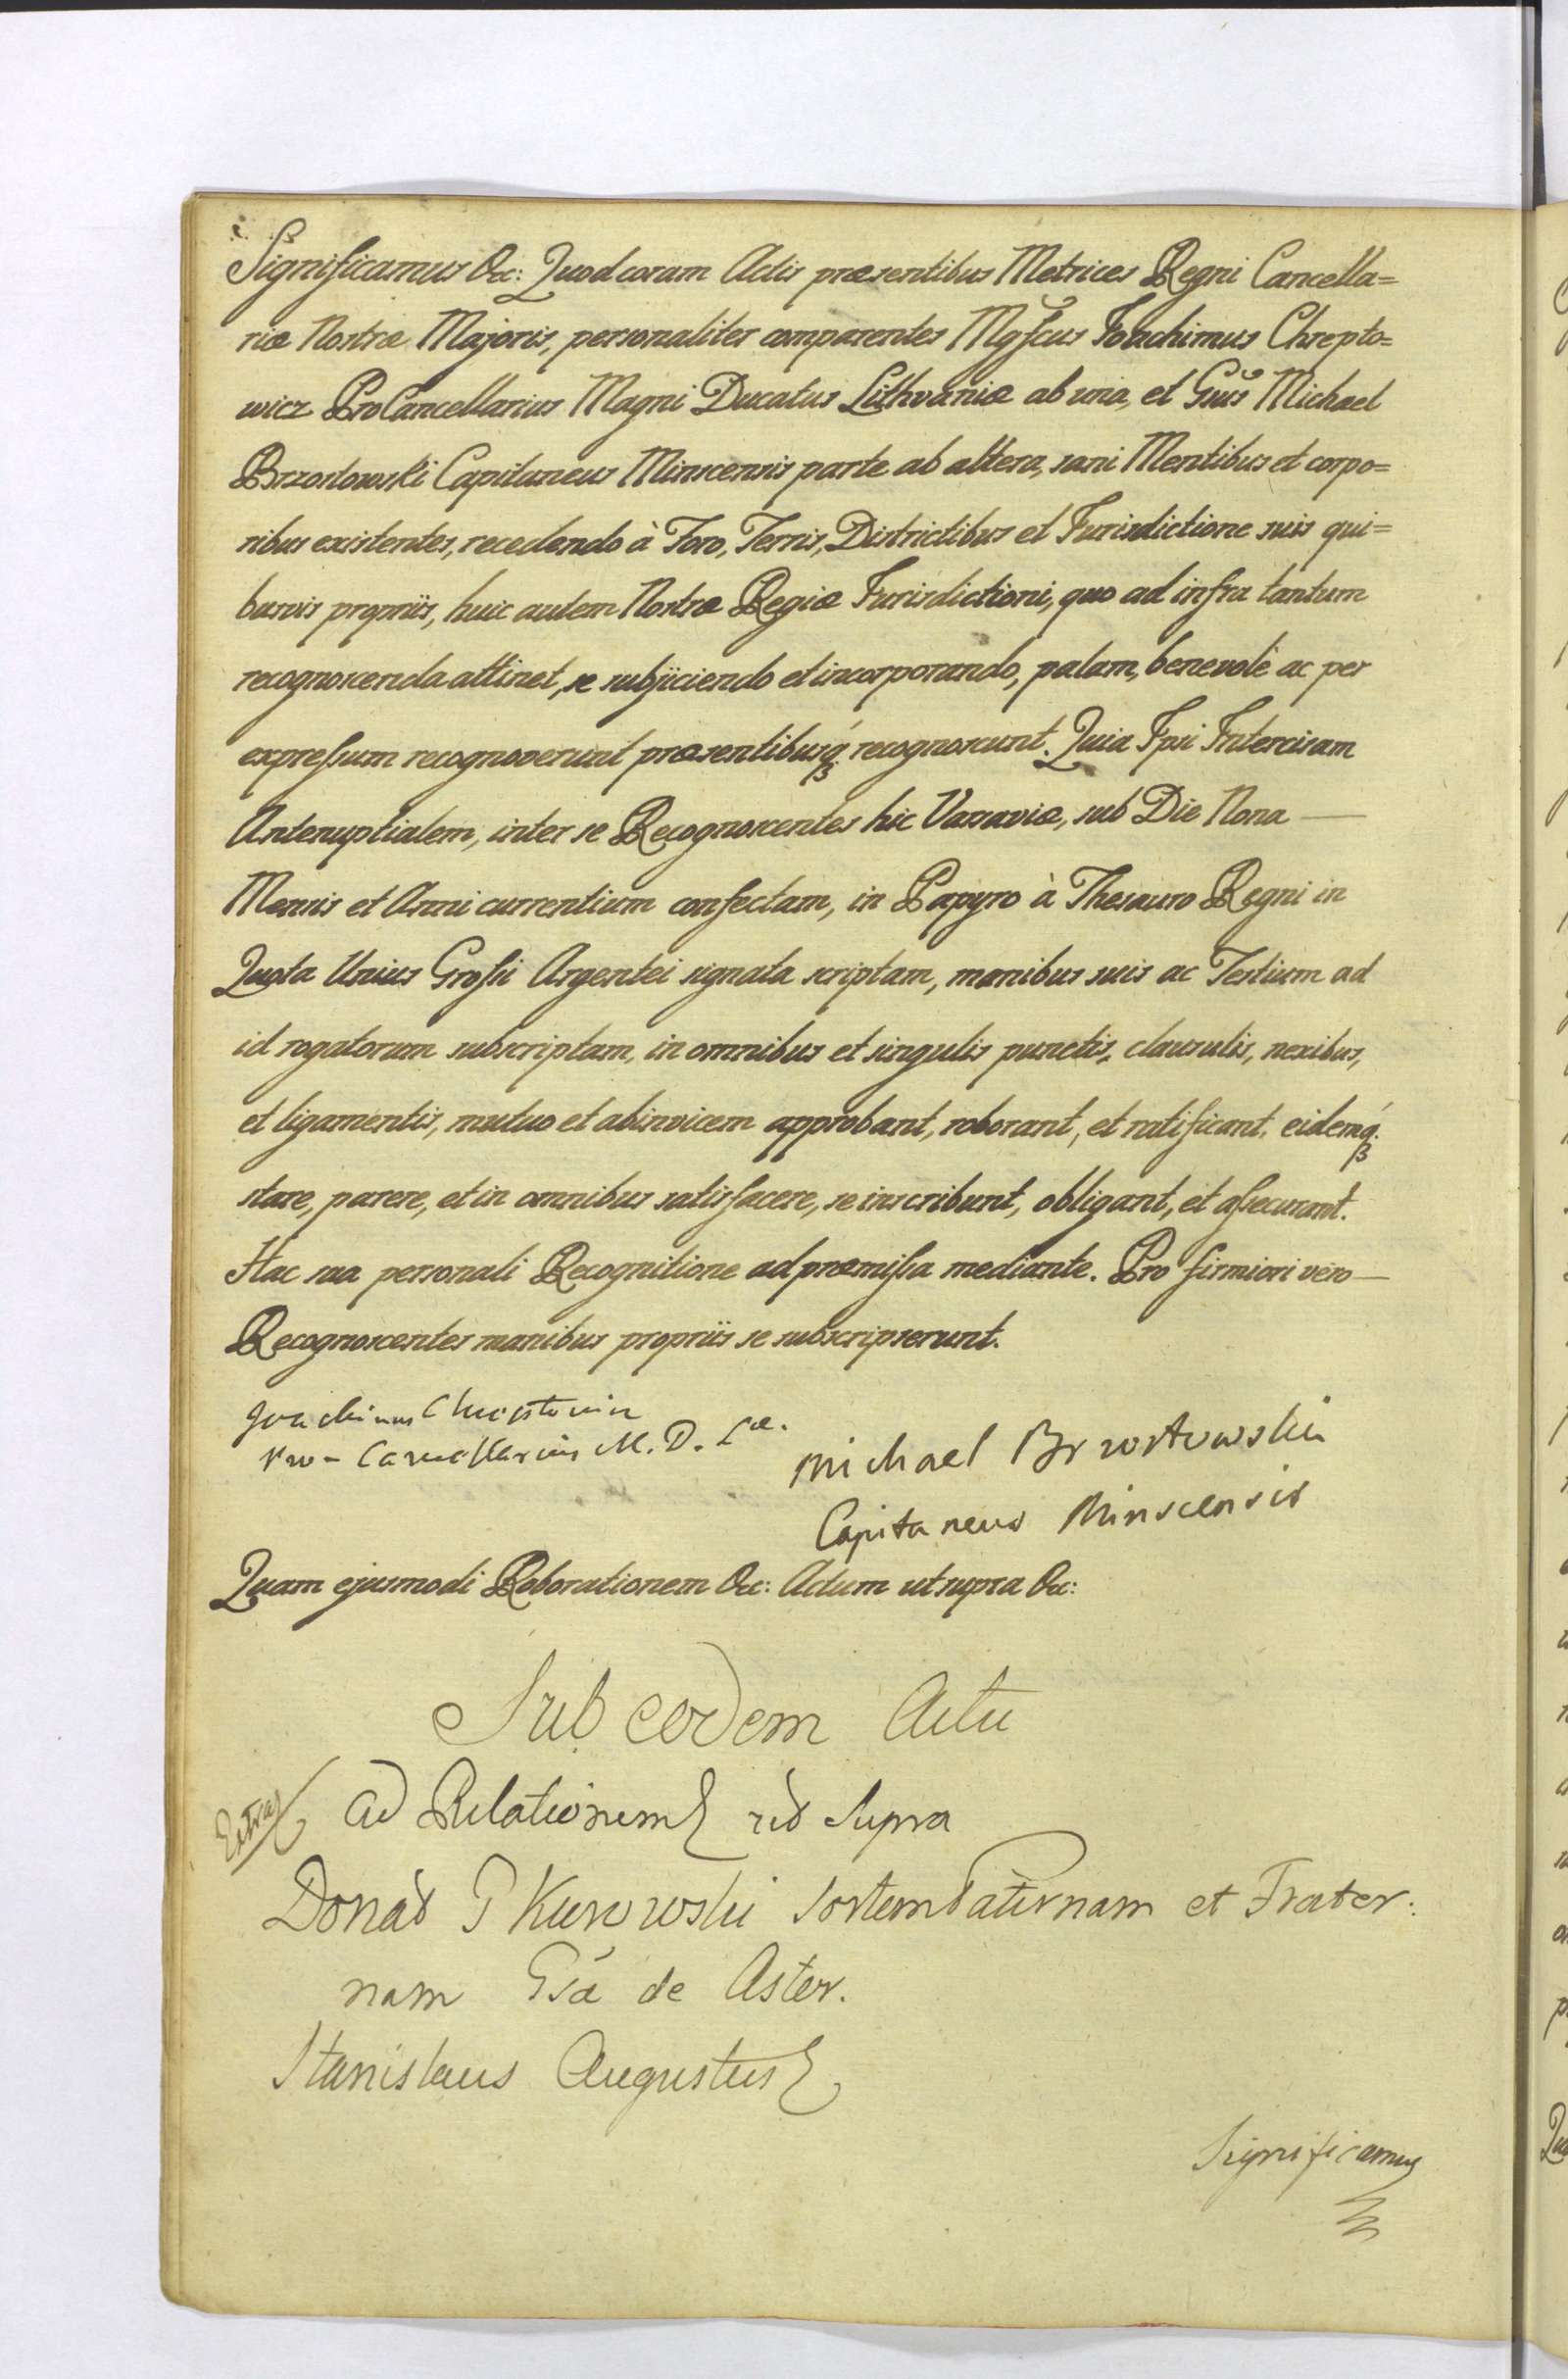 Significamus &c: Quod coram Actis præsentibus Metrices Regni Cancella=
riæ Nostræ Majoris, personaliter comparentes Mgfcus Joachimus Chrepto=
wicz ProCancellarius Magni Ducatus Lithvaniæ ab una, et Gnus Michael
Brzostowski Capitaneus Minscensis parte ab altera, sani Mentibus et corpo=
ribus existentes, recedendo à Foro, Terris, Districtibus et Jurisdictione suis qui=
busvis propriis, huic autem Nostræ Regiæ Jurisdictioni, quo ad infra tantum
recognoscenda attinet, se subjiciendo et incorporando, palam, benevolè ac per
expressum recognoverunt præsentibusq́; recognoscunt. Quia Ipsi Intercisam
Antenuptialem, inter se Recognoscentes hic Varsaviæ, sub Die Nona —
Mensis et Anni currentium confectam, in Papyro à Thesauro Regni in
Quota Unius Grossi Argentei signata scriptam, manibus suis ac Testium ad
id rogatorum subscriptam, in omnibus et singulis punctis, clausulis, nexibus,
et ligamentis, mutuo et abinvicem approbant, roborant, et ratificant, eidemq́;
stare, parere, et in omnibus satisfacere, se inscribunt, obligant, et assecurant.
Hac sua personali Recognitione ad præmissa mediante. Pro firmiori vero —
Recognoscentes manibus propriis se subscripserunt.
Joachimus Chreptowicz
Pro-Cancellarius M. D. Læ.
Michael Brzostowski
Capitaneus Minscensis
Quam ejusmodi Roborationem &c: Actum ut supra &c:
Sub eodem Actu
Ad Relationem ut Supra
Donat G Kurowski Sortem Paternam et Frater:
nam Gsá de Aster.
Stanislaus Augustus
Significamus